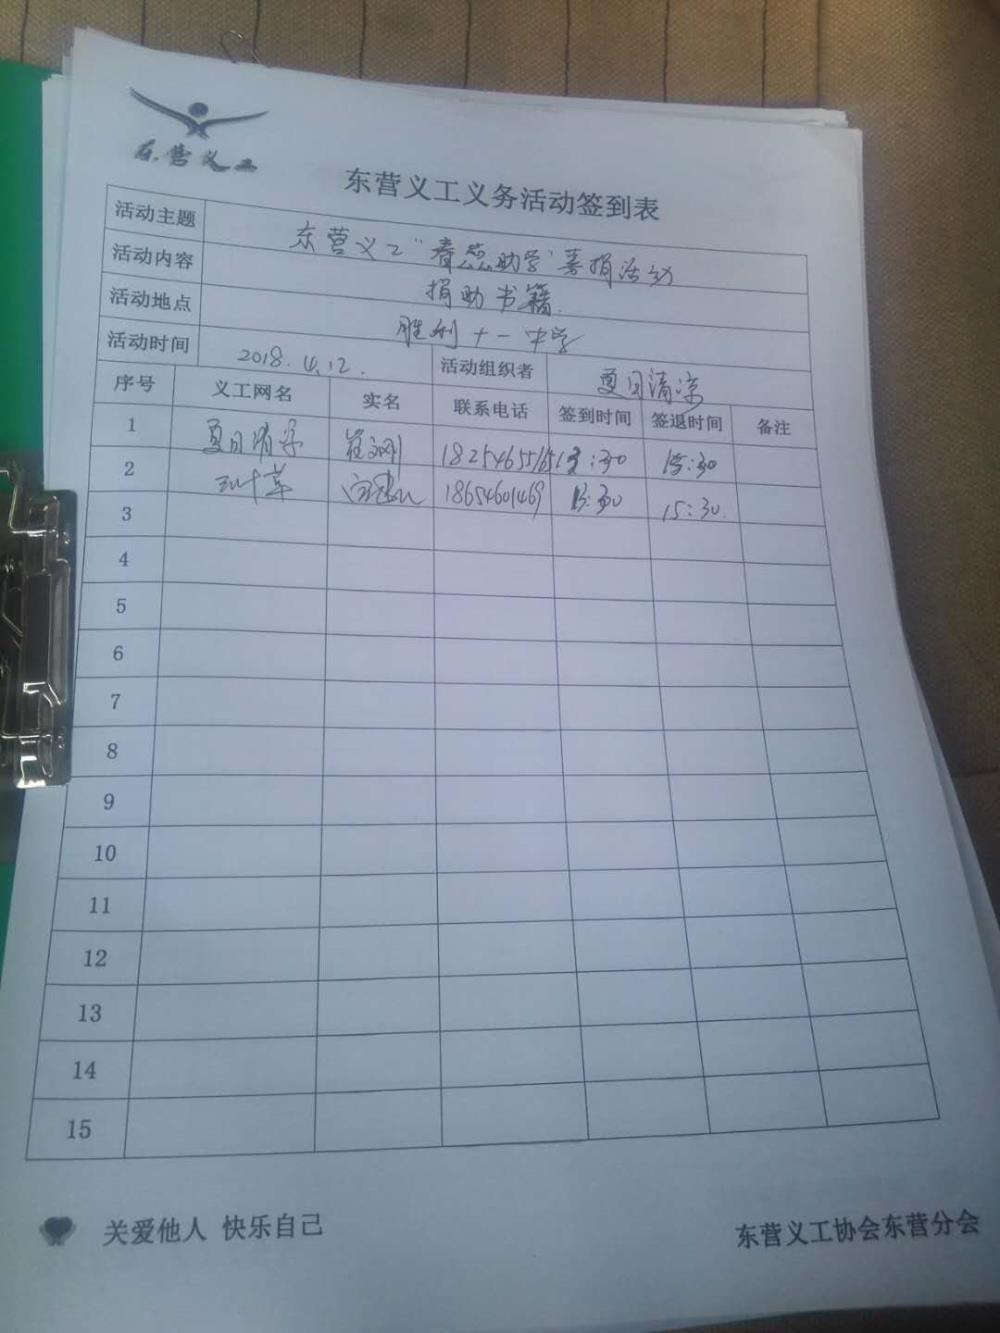 东营义工
东营义工义务活动签到表
活动主题 东营义工“春蕊助学”募捐活动
活动内容 捐助书籍.
活动地点 胜利十一中学
活动时间 2018.4.12. 活动组织者 夏日清凉
序号 义工网名 实名 联系电话 签到时间 签退时间 备注
1 夏日清凉 18254655165 13:30 15:30
2 三叶草 18654601469 13:30 15:30.
3
4
5
6
7
8
9
10
11
12
13
14
15
关爱他人 快乐自己
东营义工协会东营分会